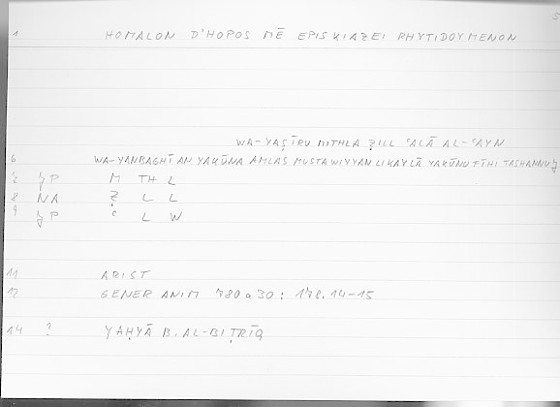 1 HOMALON D'HOPŌS MĒ EPISKIAZEI RHYTIDOYMENON
WA-YAṢĪRU MITHLA ẒILL ʿALĀ AL-ʿAYN
6 WA-YANBAGHĪ AN YAKŪNA AMLAS MUSTAWIYYAN LIKAYLĀ YAKŪNU FĪHI TASHANNUǦ
M TH L
8 NA Ẓ L L
9 ʿ L W
11 ARIST
12 GENER ANIM 780a30: 178.14-15
14 ? YAḤYĀ B. AL-BIṬRĪQ